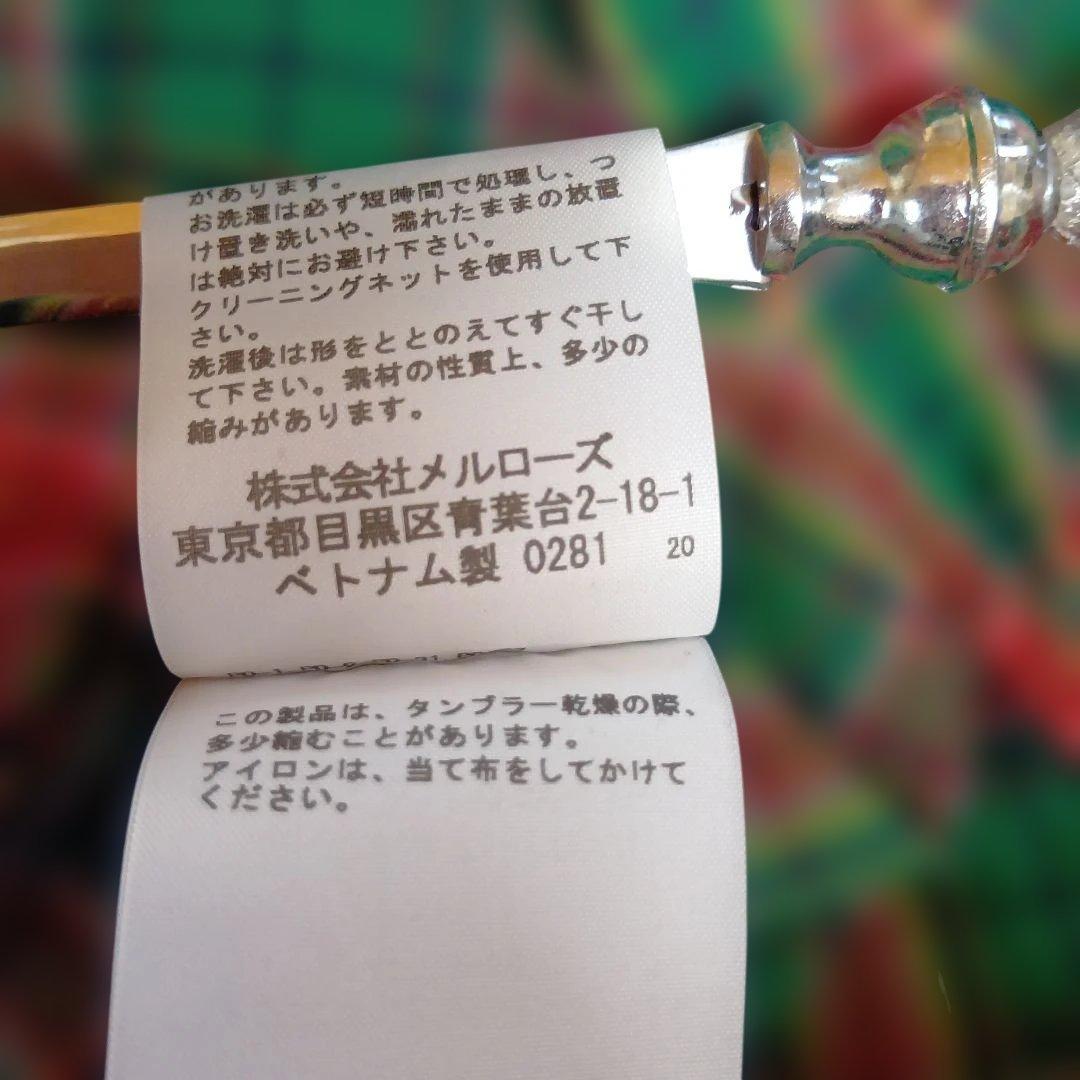 があります。
お洗濯は必ず短時間で処理し、つ
け置き洗いや、濡れたままの放置
は絶対にお避け下さい。
クリーニングネットを使用して下
さい。
洗濯後は形をととのえてすぐ干し
て下さい。素材の性質上、多少の
縮みがあります。
株式会社メルローズ
東京都目黒区青葉台2-18-1
ベトナム製 0281 20
この製品は、タンブラー乾燥の際、
多少縮むことがあります。
アイロンは、当て布をしてかけて
ください。